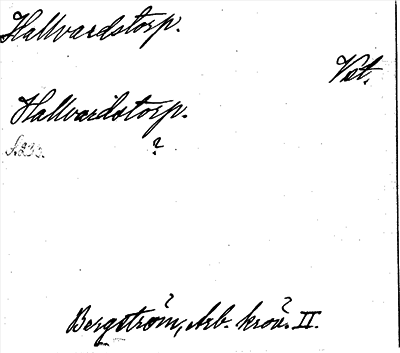 Hallvardstorp.
Vst.
Hallvardstorp.
S. 233.
?
Bergström, Arb. krön. II.